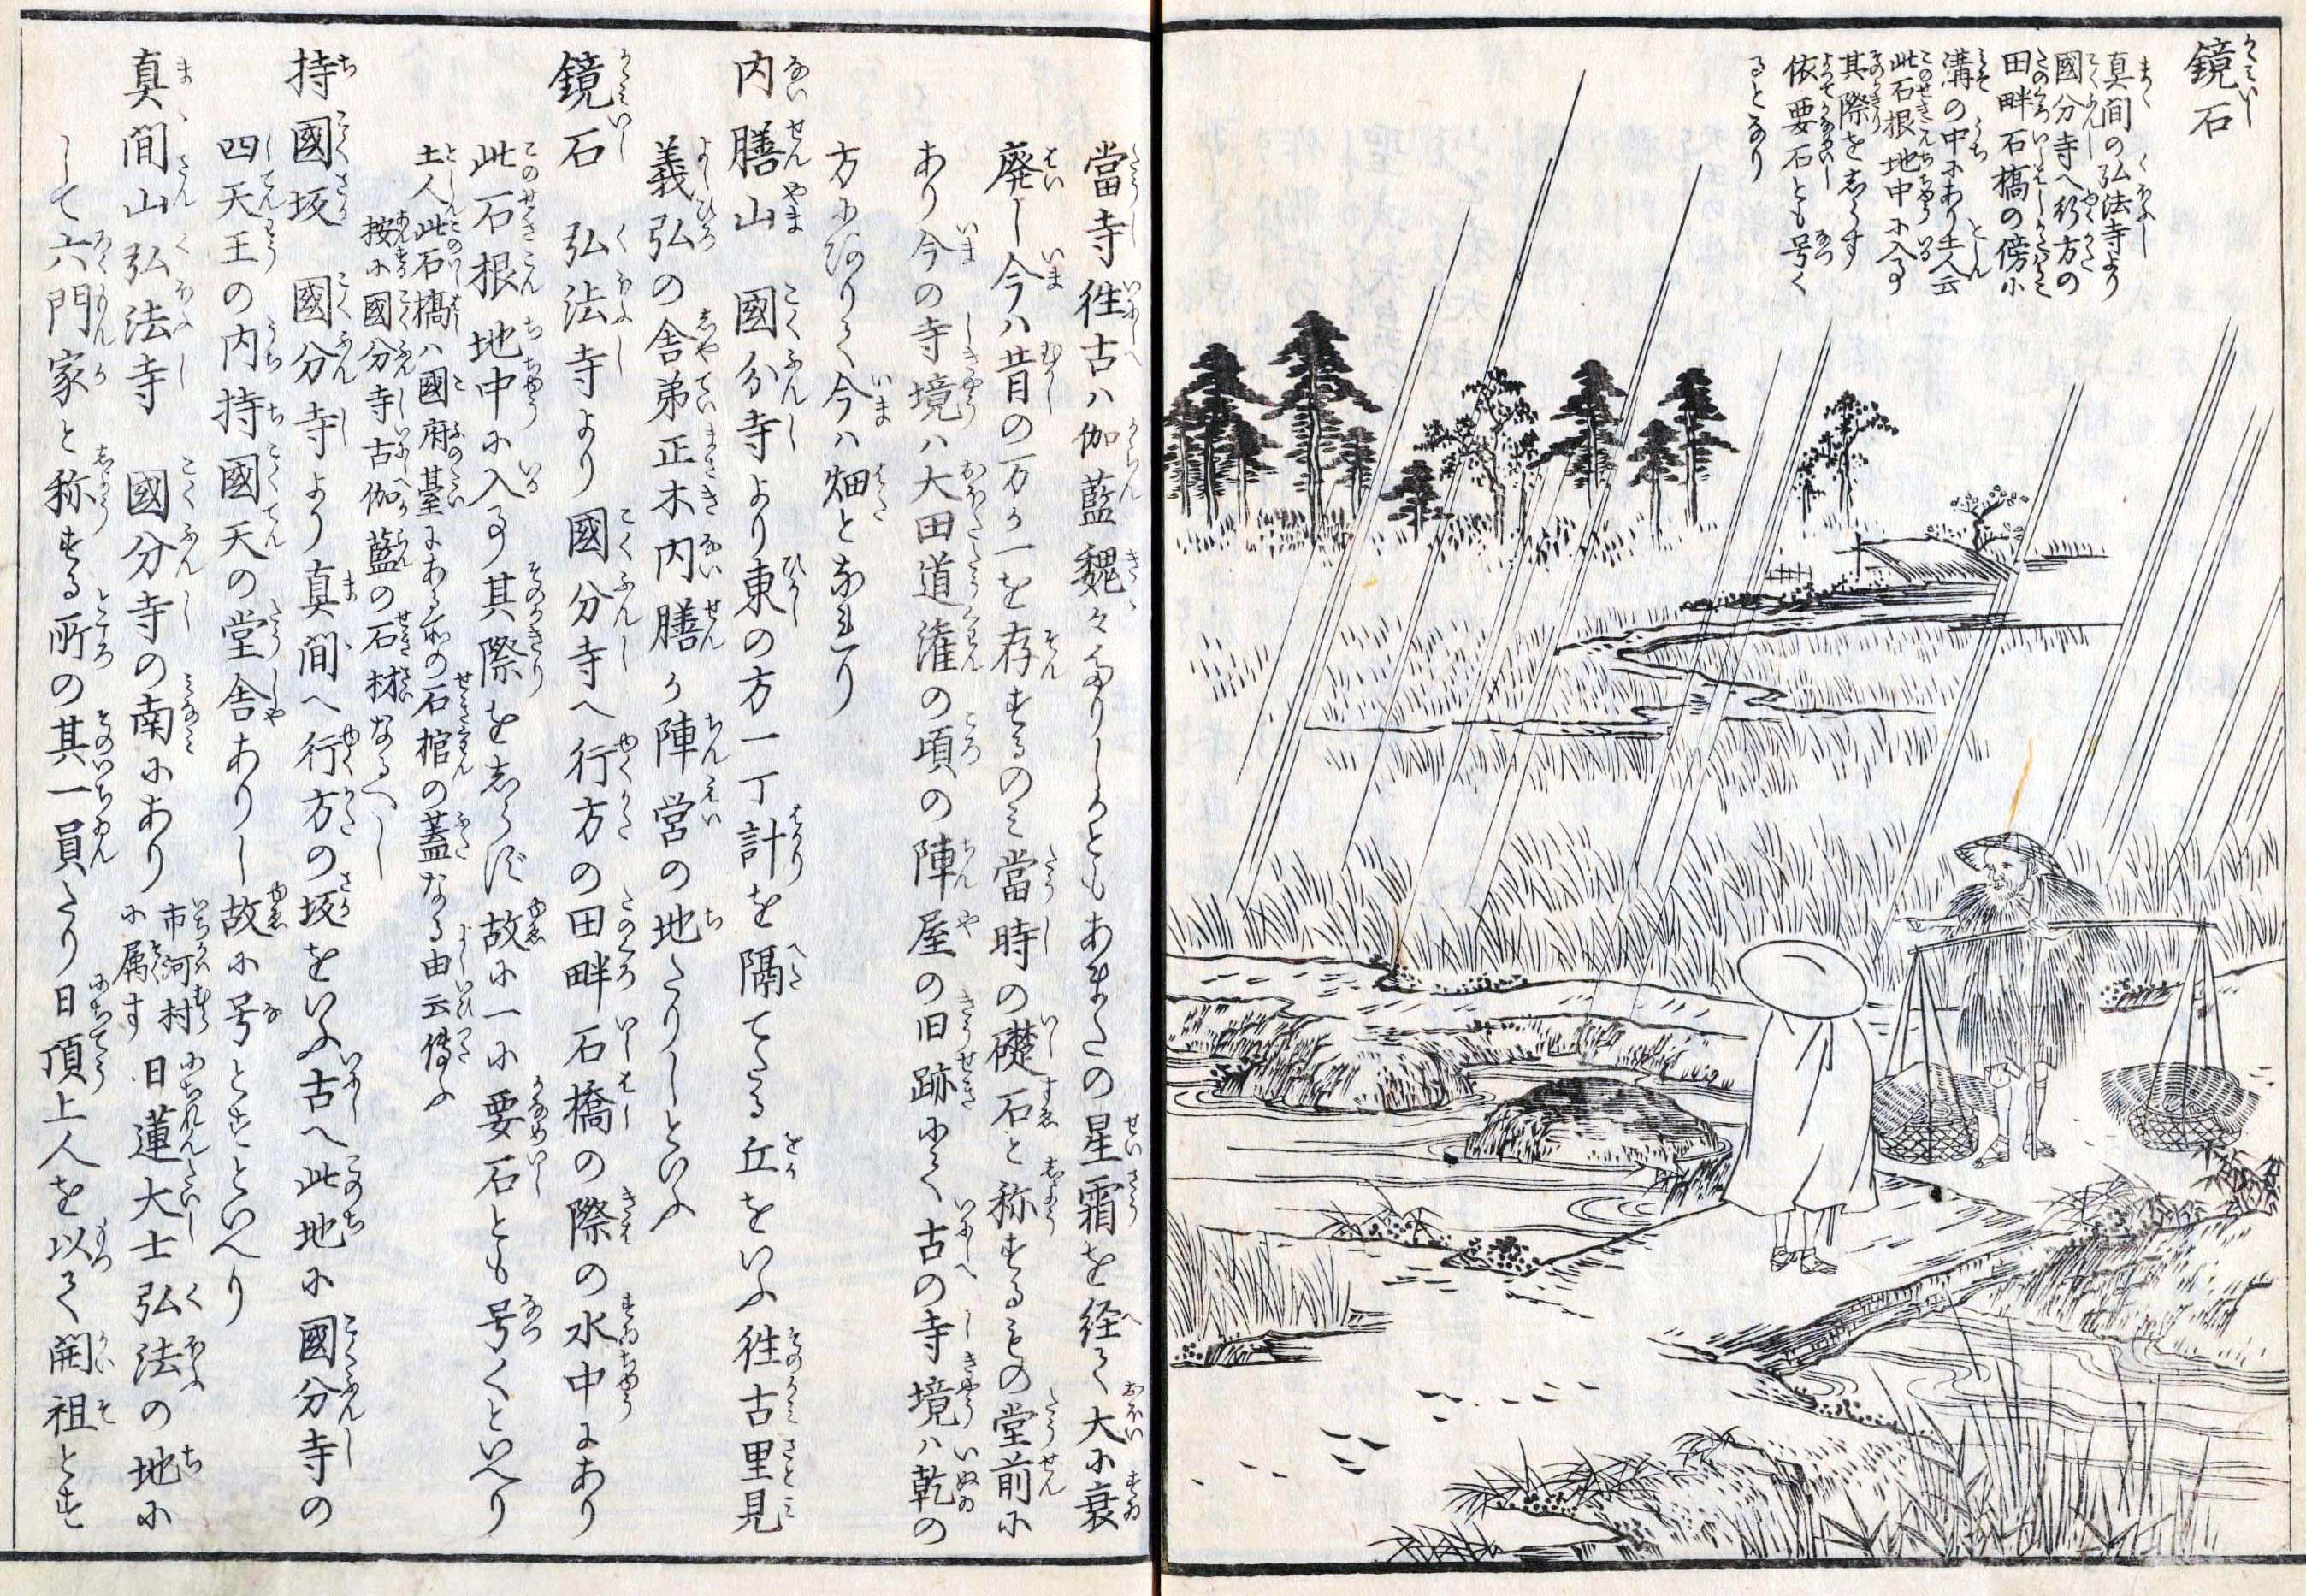 鏡石
真間の弘法寺より
國分寺へ行方の
田畔石橋の傍に
溝の中にあり土人云
此石根地中に入る事
其際をしらす
依要石とも号く
るとなり
當寺往古ハ伽藍魏々たりしかともあまたの星霜を経て大に衰
廃し今ハ昔の万か一を存するのミ當時の礎石と称するもの堂前に
あり今の寺境ハ大田道潅の頃の陣屋の旧跡にて古の寺境ハ乾の
方にありて今ハ畑となれり
内膳山 國分寺より東の方一丁計を隔てたる丘をいふ往古里見
義弘の舎弟正木内膳か陣営の地たりしといふ
鏡石 弘法寺より國分寺へ行方の田畔石橋の際の水中にあり
此石根地中に入る事其際をしらず故に一に要石とも号くといへり
土人此石橋ハ國府臺にある所の石棺の蓋なる由云傳ふ
按に國分寺古伽藍の石材なるへし
持國坂 國分寺より真間へ行方の坂をいふ古へ此地に國分寺の
四天王の内持國天の堂舎ありし故に号とすといへり
真間山弘法寺 國分寺の南にあり 市河村
に属す 日蓮大士弘法の地に
して六門家と称する所の其一員たり日頂上人を以て開祖とす